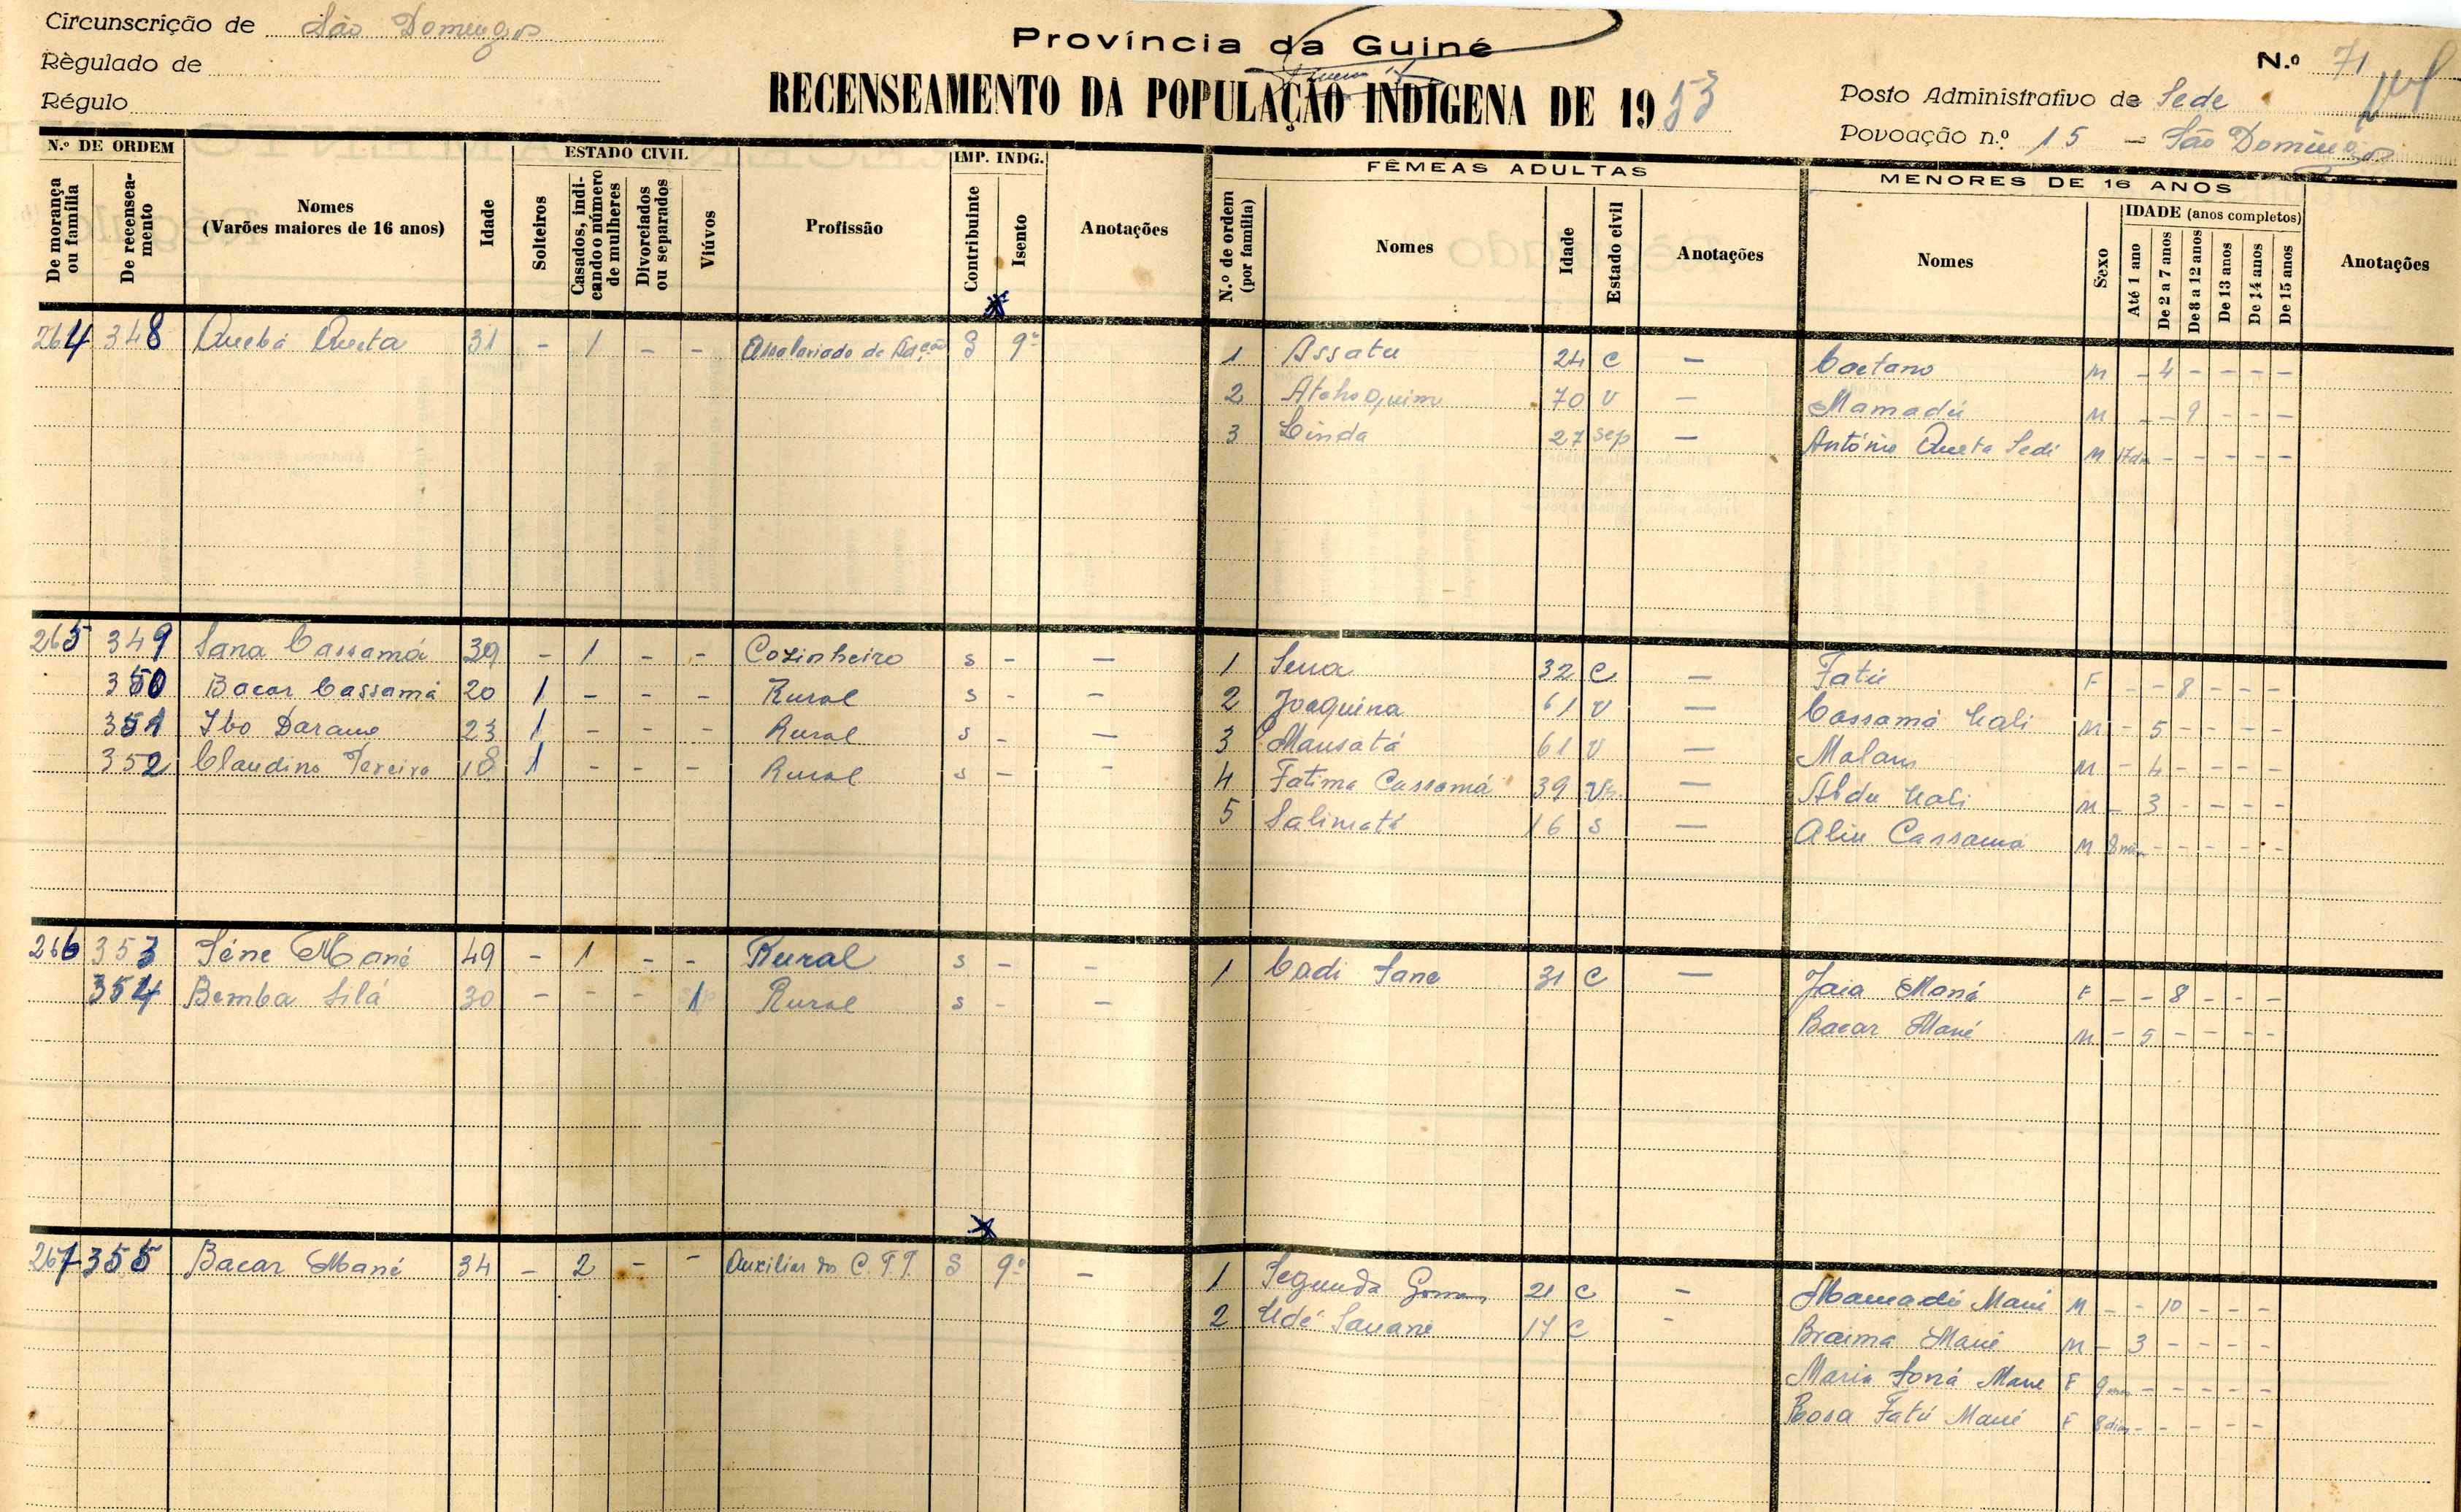 Circunscrição de São Domingos
Règulado de
Régulo
Província da Guiné
RECENSEAMENTO DA POPULAÇÃO INDÍGENA DE 1953
N.º 71
Posto Administrativo de Sede
Povoação n.º 15 - São Domingos
N.º DE ORDEM
De morança ou família
De recenseamento
Nomes
(Varões maiores de 16 anos)
Idade
ESTADO CIVIL
Solteiros
Casados, indicando o número de mulheres
Divorciados ou separados
Viúvos
Profissão
IMP. INDG.
Contribuinte
Isento
Anotações
FÊMEAS ADULTAS
N.º de ordem (por família)
Nomes
Idade
Estado civil
Anotações
MENORES DE 16 ANOS
Nomes
Sexo
IDADE (anos completos)
Até 1 ano
De 2 a 7 anos
De 8 a 12 anos
De 13 anos
De 14 anos
De 15 anos
Anotações
264 348 Quebá Queta 31 - 1 - - Assalariado da S 9º
1 Assatu 24 C - Caetano M - 4 - - - -
2 70 V - Mamadú M - - 9 - - -
3 Linda 27 sep - António Queta Sedi M 17 dias - - - - -
265 349 Sana Cassamá 39 - 1 - - Cozinheiro S - -
350 Bacar Cassamá 20 1 - - - Rural S - -
351 Ibo Darame 23 1 - - - Rural S - -
352 Claudino Pereira 18 1 - - - Rural S - -
1 32 C - Fatú F - - 8 - - -
2 Joaquina 61 V - Cassamá M - 5 - - - -
3 Mansatá 61 V - Malam M - 4 - - - -
4 Fatima Cassamá 39 - Abdu M - 3 - - - -
5 Salimatá 16 S - Aliu Cassama M 8 - - - - -
266 353 Séne Mané 49 - 1 - - Rural S - -
354 Bemba Silá 30 - - - 1 Rural S - -
1 Cadi Sane 31 C - Jaia Mané F - - 8 - - -
Bacar Mané M - 5 - - - -
267 355 Bacar Mané 34 - 2 - - Auxiliar dos C.T.T. S 9º -
1 Segunda Gomes 21 C - Mamadú Mané M - - 10 - - -
2 Udé Sauane 17 C - Braima Mané M - 3 - - - -
Maria Mane F 9 - - - - -
Rosa Fatú Mané F 8 dias - - - - -